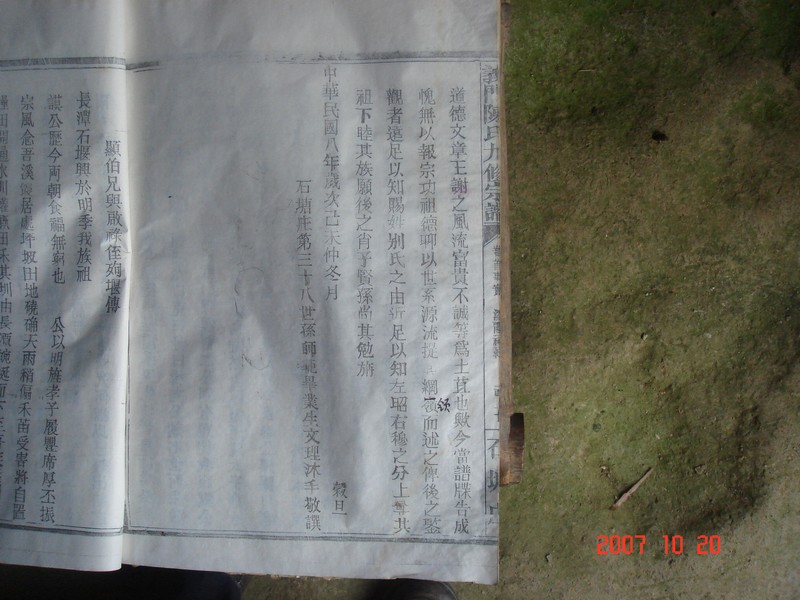 義門陳氏九修宗譜
道德文章王謝之風流富貴不誠等為土苴也歟今當譜牒告成
愧無以報宗功祖德聊以世系源流提其綱領而述之俾後之鑒
觀者遠足以知賜姓別氏之由近足以知左昭右穆之分上尊其
祖下睦其族願後之肖子賢孫尚其勉旃
中華民國八年歲次己未仲冬月 穀旦
石塘庄第三十八世孫師範畢業生文理沐手敬譔
顯伯兄與敢祿侄殉堰傳
長潭石堰興於明季我族祖
謨公歷今兩朝食福無窮也 公以明旌孝子履豐席厚丕振
宗風念吾漢 居 坪坡田地磽确天雨稍偏禾苗受害將自置
2007 10 20